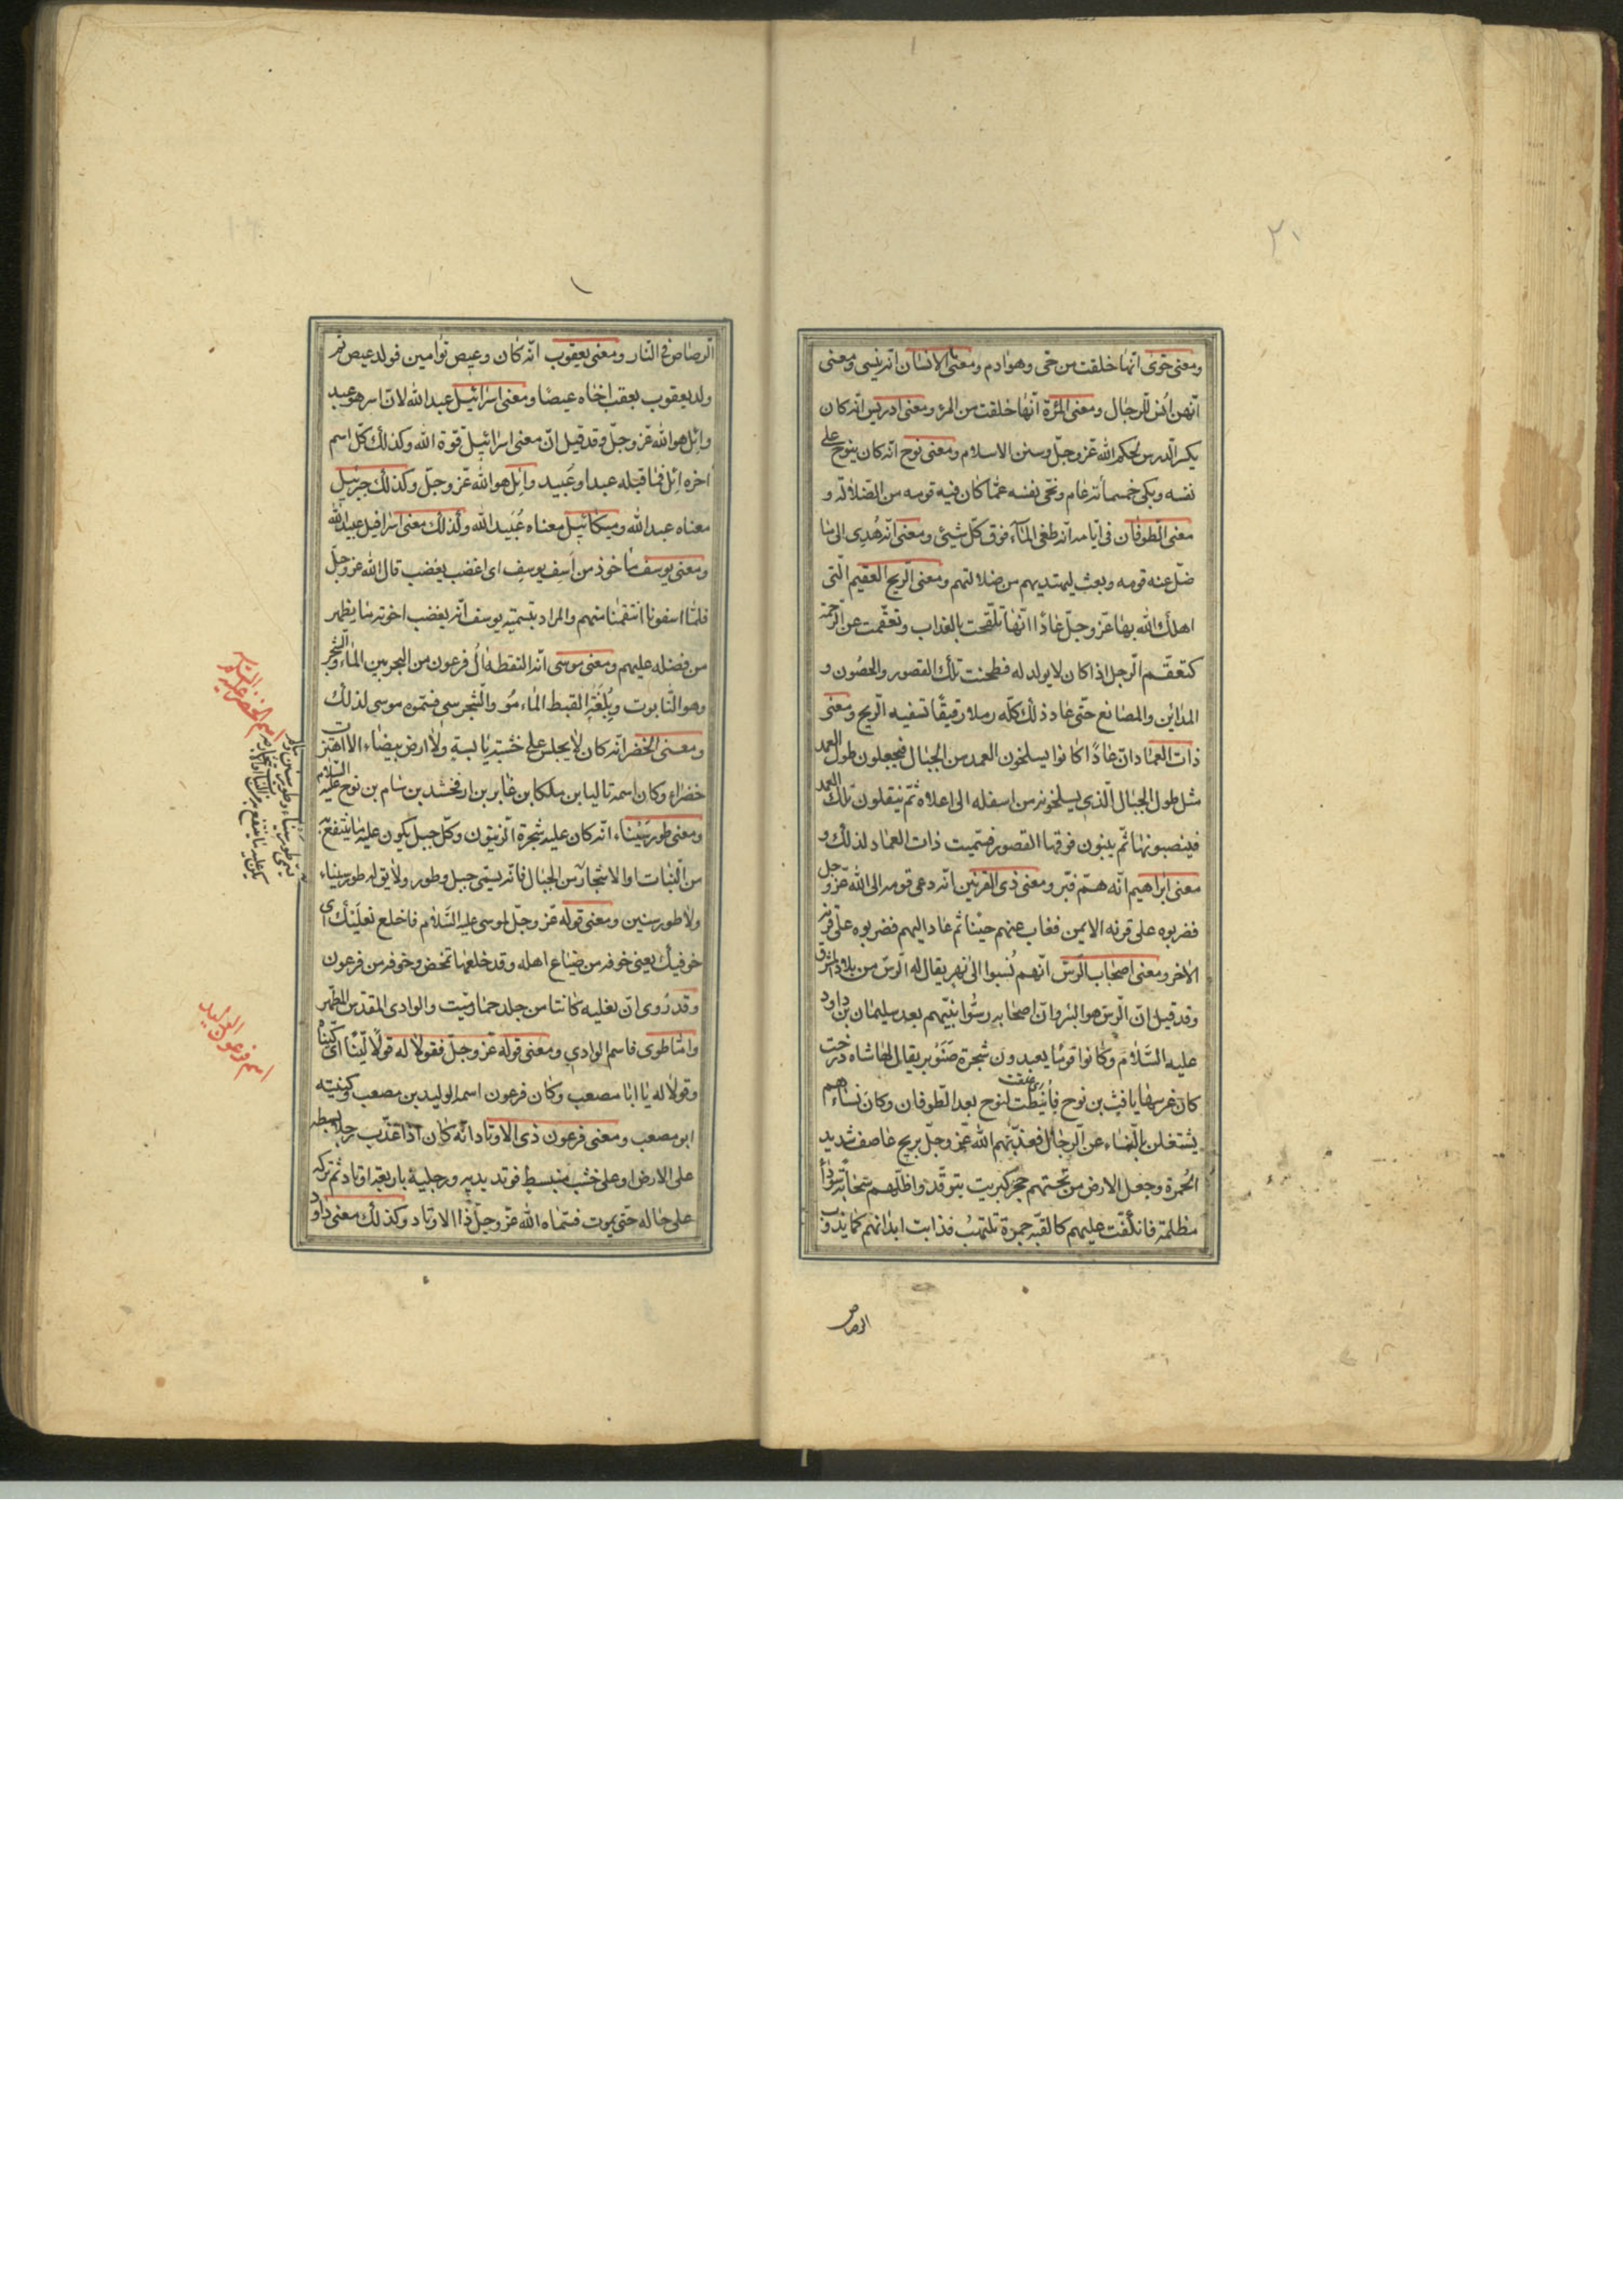 ٢٠
ومعنى حوى انّها خلقت من حى وهو ادم ومعنى الانسان انّه ينسى ومعنى
انّهن انس للرجال ومعنى المرئة انّها خلقت من المرء ومعنى ادريس انّه كان
يكثر الدرس لحكم الله عزّ وجلّ وسنن الاسلام ومعنى نوح انّه كان ينوح على
نفسه وبكى خمسمائة عام ونحى نفسه عمّا كان فيه قومه من الضلالة و
معنى الطوفان فى ايّامه انّه طغى الماء فوق كلّ شيئ ومعنى انّه هُدى الى ما
ضلّ عنه قومه وبعث ليهتديهم من ضلالتهم ومعنى الريح العقيم الّتى
اهلك الله بها عزّ وجلّ عادًا انّها تلقّحت بالعذاب وتعقّمت عن الرحمة
كتعقّم الرجل اذا كان لا يولد له فطحنت تلك القصور والحصون و
المداين والمصانع حتّى عاد ذلك كلّه رملا رقيقًا تسفيه الريح ومعنى
ذات العماد انّ عادًا كانوا يسلخون العمد من الجبال فيجعلون طول العمد
مثل طول الجبال الّذى يسلخونه من اسفله الى اعلاه ثمّ ينقلون تلك العمد
فينصبونها ثمّ يبنون فوقها القصور فسمّيت ذات العماد لذلك و
معنى ابراهيم انّه همّ فبرّ ومعنى ذى القرنين انّه دعى قومه الى الله عزّ وجل
فضربوه على قرنه الايمن فغاب عنهم حينًا ثم عاد اليهم فضربوه على قرنه
الاخر ومعنى اصحاب الرسّ انّهم نُسبوا الى نهر يقال له الرسّ من بلاد المشرق
وقد قيل انّ الرسّ هو البئر وانّ اصحابه رسّوا نبيّهم بعد سليمان بن داود
عليه السّلام وكانوا قومًا يعبدون شجرة صَنَوبر يقال لها شاه درخت
كان غرسها يافث بن نوح فأنيطت لنوح بعد الطوفان وكان نساءهم
يشتغلن بالنساء عن الرجال فعذّبهم الله عزّ وجلّ بريح عاصف شديد
الحُمرة وجعل الارض من تحتهم حجر كبريت يتوقّد واظلّهم سحابة سوداء
مظلمة فانكفّت عليهم كالقبّه جمرة تلتهب فذابت ابدانهم كما يذوب
الرصاص
الرصاص فى النار ومعنى يعقوب انّه كان وعيص توامين فولد عيص ثم
ولد يعقوب بعقب اخاه عيصًا ومعنى اسرائيل عبد الله لانّ اسر هو عبد
وائل هو الله عزّ وجلّ وقد قيل انّ معنى اسرائيل قوة الله وكذلك كلّ اسم
اخره ائل فما قبله عبد او عُبيد وائل هو الله عزّ وجلّ وكذلك جبرئيل
معناه عبد الله وميكائيل معناه عُبيد الله وكذلك معنى اسرافيل عبيد الله
ومعنى يوسف ماخوذ من اَسِف يوسف اى اغضب يغضب قال الله عزّ وجلّ
فلمّا اسفونا انتقمنا منهم والمراد بتسميته يوسف انّه يغضب اخوته ما يظهر
من فضله عليهم ومعنى موسى انّه التقطه الُ فرعون من البحر بين الماء والشجر
وهو التابوت وبِلُغَةِ القبط الماء مُو والشجر سى فسمّوه موسى لذلك
ومعنى الخضر انّه كان لا يجلس على خشبة يابسة ولا ارض بيضاء الا اهتزّت
خضراء وكان اسمه تاليا بن ملكا بن عابر بن ارفخشد بن سام بن نوح عليه السّلام
ومعنى طور سَيْناء انّه كان عليه شجرة الزيتون وكلّ جبل يكون عليه ما ينتفع به
من النبات او الاشجار من الجبال فانّه يسمّى جبل وطور ولا يق له طور سيناء
ولا طور سنين ومعنى قوله عزّ وجلّ لموسى عليه السّلام فاخلع نعلَيْك اى
خوفيك يعنى خوفه من ضياع اهله وقد خلفها تمخض وخوفه من فرعون
وقد رُوى انّ نعليه كانتا من جلد حمار ميّت والوادى المقدّس المطهّر
وامّا طوى فاسم الوادى ومعنى قوله عزّ وجلّ فقولا له قولًا ليّنًا اى كنّياه
وقولا له يا ابا مصعب وكان فرعون اسمه الوليد بن مصعب وكنيته
ابو مصعب ومعنى فرعون ذى الاوتاد انّه كان اذا عذّب رجلا بسطه
على الارض او على خشب منبسط فوتد يديه ورجليه باربعة اوتاد ثم تركه
على حاله حتّى يموت فسمّاه الله عزّ وجلّ ذا الاوتاد وكذلك معنى داود
اسم فرعون الوليد